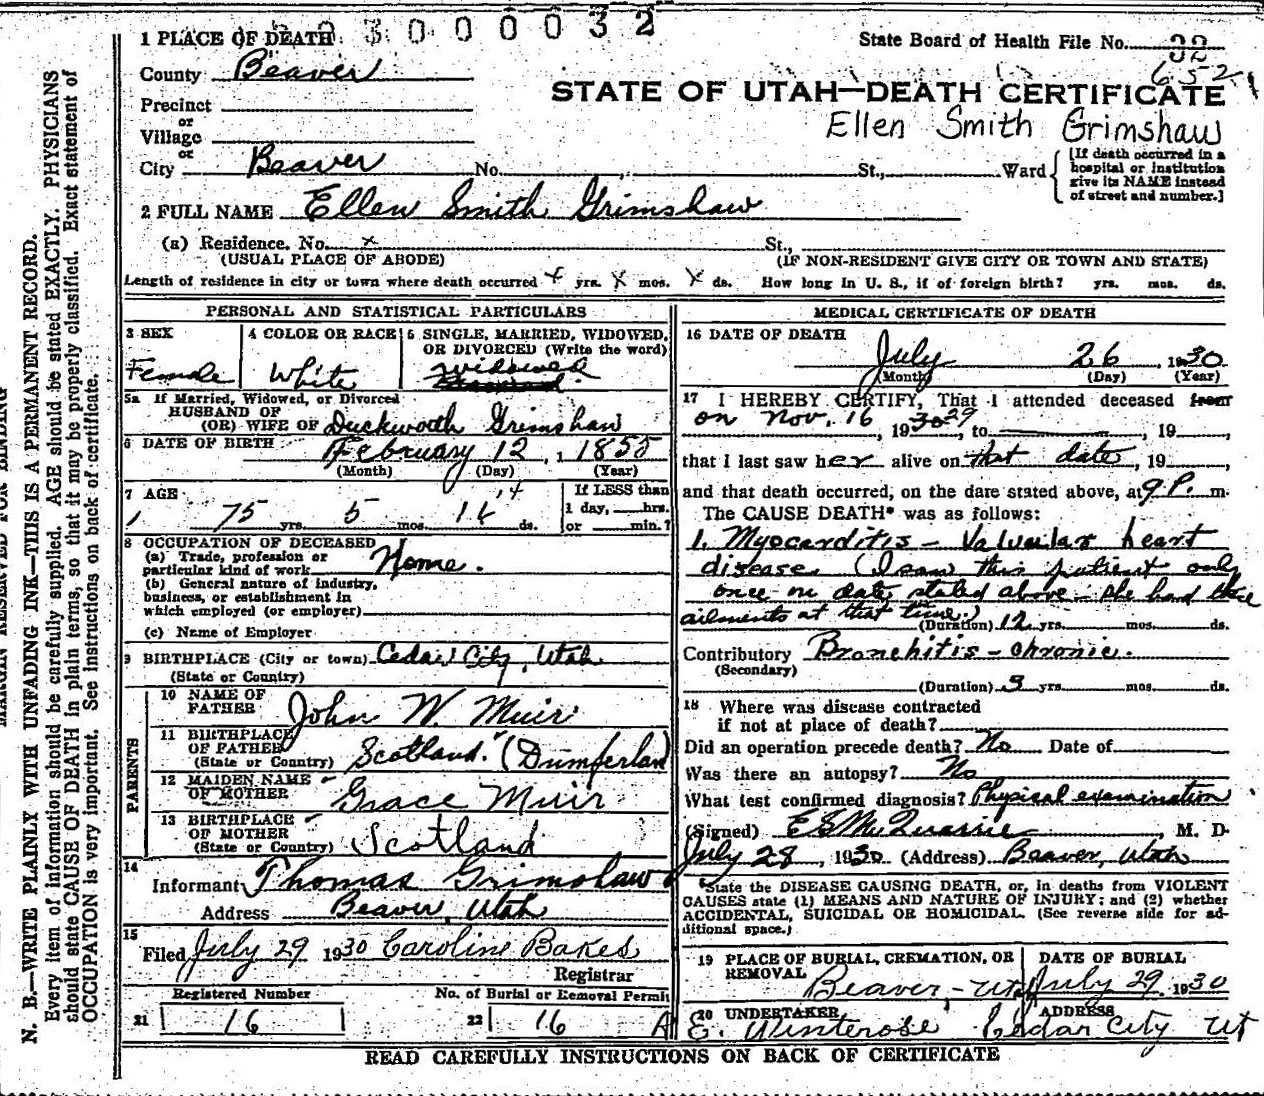 3000032
1 PLACE OF DEATH
State Board of Health File No. 32
652
County Beaver
STATE OF UTAH—DEATH CERTIFICATE
Precinct
or
Village
or
City Beaver No. St., Ward
Ellen Smith Grimshaw
[If death occurred in a hospital or institution give its NAME instead of street and number.]
2 FULL NAME Ellen Smith Grimshaw
(a) Residence. No. x St.,
(USUAL PLACE OF ABODE) (IF NON-RESIDENT GIVE CITY OR TOWN AND STATE)
Length of residence in city or town where death occurred x yrs. x mos. x ds. How long in U. S., if of foreign birth? yrs. mos. ds.
PERSONAL AND STATISTICAL PARTICULARS
3 SEX
Female
4 COLOR OR RACE
White
5 SINGLE, MARRIED, WIDOWED, OR DIVORCED (Write the word)
widowed
5a If Married, Widowed, or Divorced
HUSBAND OF
(OR) WIFE OF Duckworth Grimshaw
6 DATE OF BIRTH February 12, 1855
(Month) (Day) (Year)
7 AGE
75 yrs. 5 mos. 14 ds.
14
If LESS than
1 day, hrs.
or min.?
8 OCCUPATION OF DECEASED
(a) Trade, profession or
particular kind of work Home.
(b) General nature of industry,
business, or establishment in
which employed (or employer)
(c) Name of Employer
9 BIRTHPLACE (City or town) Cedar City, Utah
(State or Country)
PARENTS
10 NAME OF
FATHER John W. Muir
11 BIRTHPLACE
OF FATHER
(State or Country) Scotland. (Dumferlan
12 MAIDEN NAME
OF MOTHER Grace Muir
13 BIRTHPLACE
OF MOTHER
(State or Country) Scotland
14
Informant Thomas Grimshaw
Address Beaver, Utah
15
Filed July 29 1930 Caroline Bakes
Registrar
Registered Number
21 16
No. of Burial or Removal Permit
22 16
MEDICAL CERTIFICATE OF DEATH
16 DATE OF DEATH
July 26, 1930
(Month) (Day) (Year)
17 I HEREBY CERTIFY, That I attended deceased from
on Nov. 16, 1930 29, to , 19
that I last saw her alive on that date, 19
and that death occurred, on the date stated above, at 9 P. m.
The CAUSE DEATH* was as follows:
1. Myocarditis - Valvular heart
disease. (I saw this patient only
once on date stated above - she had these
ailments at that time.)
(Duration) 12 yrs. mos. ds.
Contributory Bronchitis - chronic.
(Secondary)
(Duration) 3 yrs. mos. ds.
18 Where was disease contracted
if not at place of death?
Did an operation precede death? No Date of
Was there an autopsy? No
What test confirmed diagnosis? Physical examination
(Signed) E S McQuarrie, M. D.
July 28, 1930 (Address) Beaver, Utah
*State the DISEASE CAUSING DEATH, or, in deaths from VIOLENT
CAUSES state (1) MEANS AND NATURE OF INJURY; and (2) whether
ACCIDENTAL, SUICIDAL OR HOMICIDAL. (See reverse side for ad-
ditional space.)
19 PLACE OF BURIAL, CREMATION, OR
REMOVAL
Beaver, - Ut
DATE OF BURIAL
July 29 1930
20 UNDERTAKER
E. Winterose
ADDRESS
Cedar City Ut
READ CAREFULLY INSTRUCTIONS ON BACK OF CERTIFICATE
MARGIN RESERVED FOR BINDING
N. B.—WRITE PLAINLY WITH UNFADING INK—THIS IS A PERMANENT RECORD.
Every item of information should be carefully supplied. AGE should be stated EXACTLY. PHYSICIANS
should state CAUSE OF DEATH in plain terms, so that it may be properly classified. Exact statement of
OCCUPATION is very important. See instructions on back of certificate.